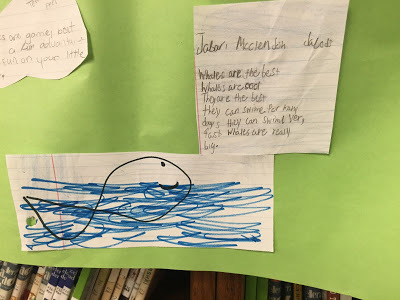 are gonna best
on your little
Jabari McClendon Jabest
Whales are the best
Whales are cool
They are the best
they can swime for many
days they can swime very
fast whales are realy
big.